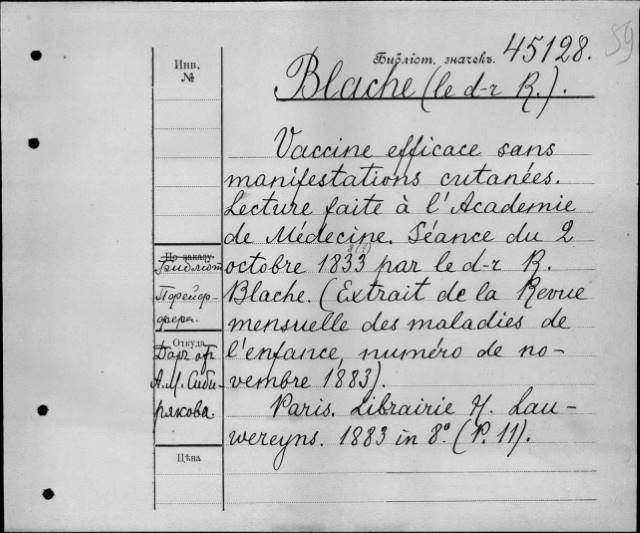 59
Инв.
№
Библіот. значекъ. 45128.
Blache (le d-r R.).
Vaccine efficace sans
manifestations cutanées.
Lecture faite à l'Academie
de Médecine. Séance du 2
octobre 1833 par le d-r R.
Blache. (Extrait de la Revue
mensuelle des maladies de
l'enfance, numéro de no-
vembre 1883).
Paris. Librairie H. Lau-
wereyns. 1883 in 8º. (P. 11).
По заказу.
Библіот.
Порейор-
фера.
Откуда
Даръ отъ
А. М. Сиби-
рякова.
Цѣна